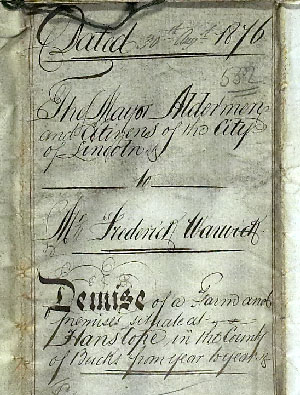 Dated 30th Augt 1876
632
The Mayor Aldermen
and Citizens of the City
of Lincoln
to
Mr Frederick Warwick
Demise of a Farm and
premises situate at
Hanslope in the County
of Bucks from year to year